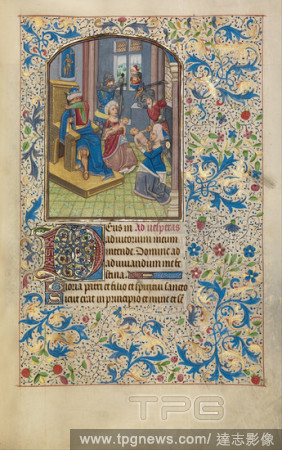 Eus in Ad vesperas
adiutorium meum
intende Domine ad
adiuuandum me fe
stina
Gloria patri et filio et spiritui sancto
Sicut erat in principio et nunc et
TPG
www.tpgnews.com/ 達志影像